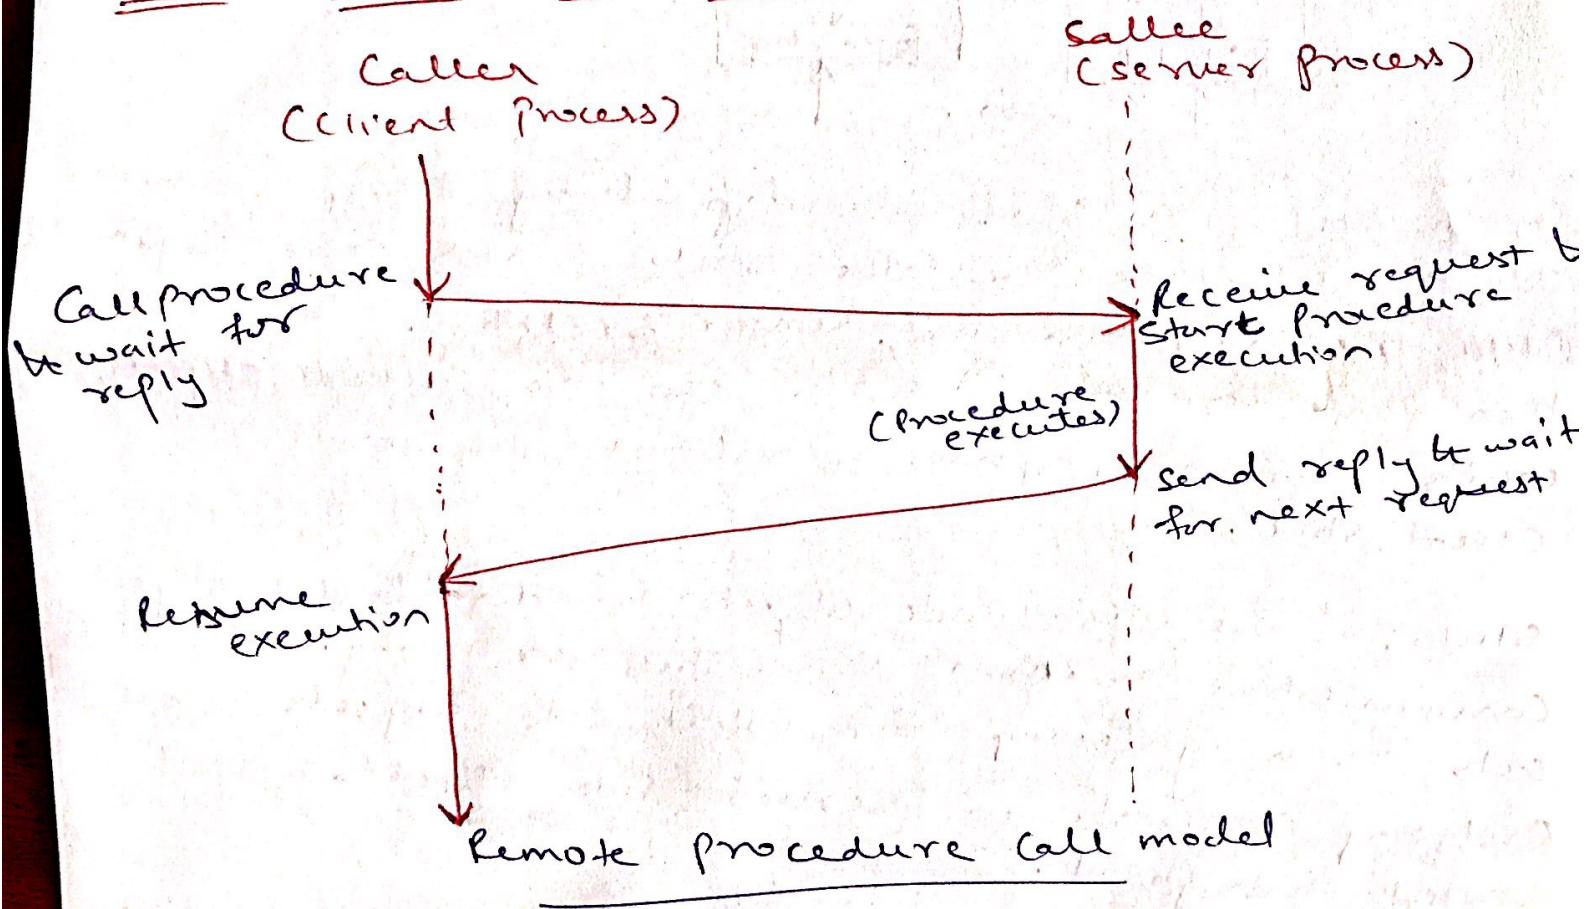 Caller
(Client Process)
Sallee
(server process)
Call procedure
& wait for
reply
Receive request &
start Procedure
execution
(Procedure
executes)
send reply & wait
for next request
Resume
execution
Remote procedure call model